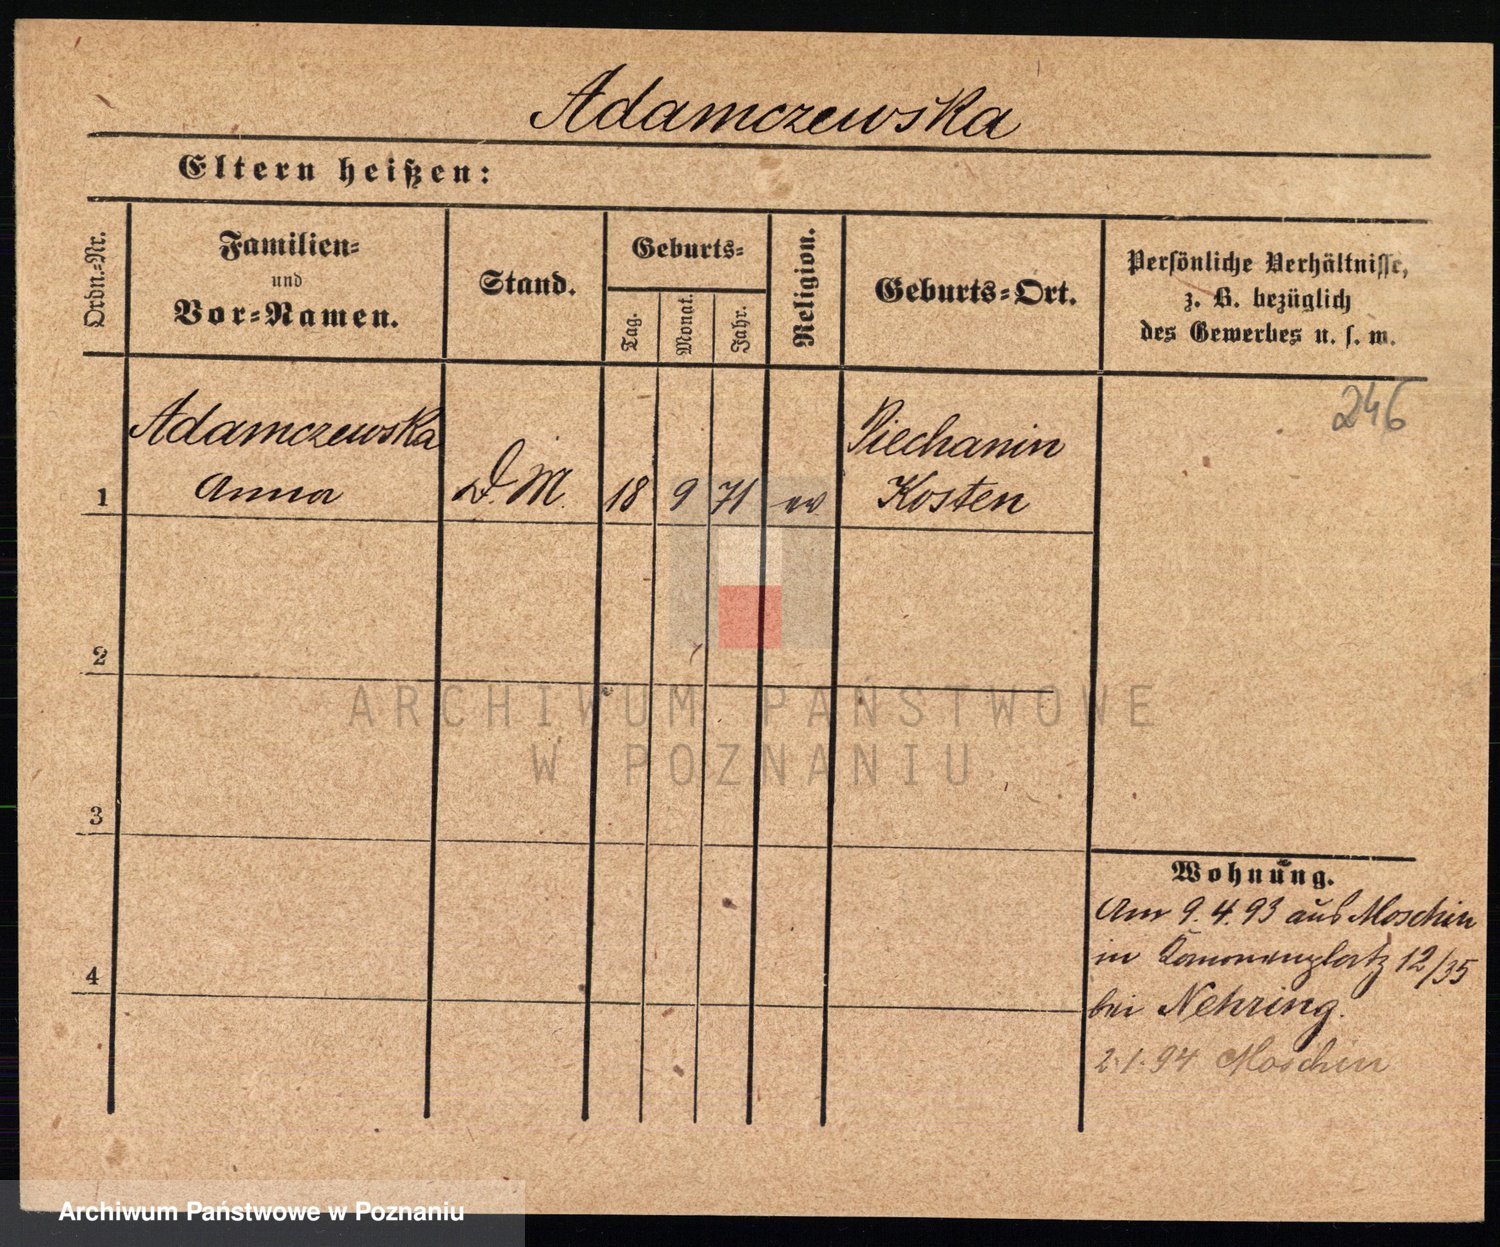 Adamczewska
Eltern heißen:
Ordn.-Nr.
Familien-
und
Vor-Namen.
Stand.
Geburts-
Tag.
Monat.
Jahr.
Religion.
Geburts-Ort.
Persönliche Verhältnisse,
z. B. bezüglich
des Gewerbes u. s. w.
246
Adamczewska
Anna
1
D. M.
18
9
71
ev
Piechanin
Kosten
2
3
4
Wohnung.
Am 9.4.93 aus Moschin
in Kanonenplatz 12/35
bei Nehring.
2.1.94 Moschin
ARCHIWUM PAŃSTWOWE
W POZNANIU
Archiwum Państwowe w Poznaniu